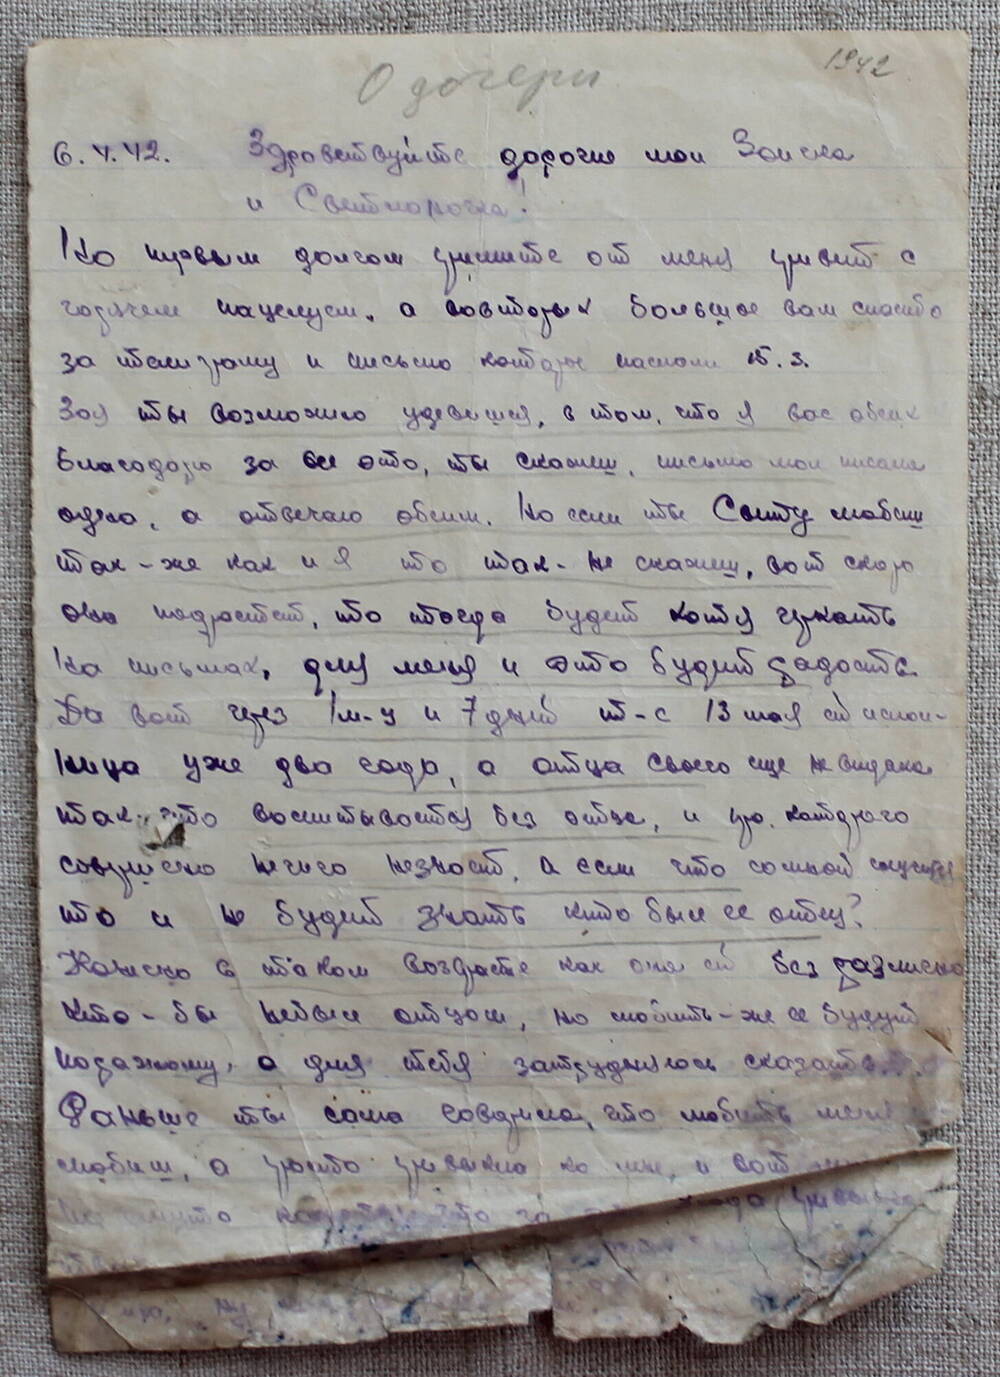 О дочери
1942
6.4.42. Здровствуйте дорогие мои Зоичка
и Светлоночка!
Но первым долгом примите от меня привет с
горячем поцелуем, а вовторых большое вам спасибо
за телеграму и письмо которые послали 15.3.
Зоя ты возможно удевишся, в том, что я вас обеих
благодарю за все это, ты скажиш, письмо мол писала
одна, а отвечаю обеим. Но если ты Свету любиш
так-же как и я то так-не скажиш, вот скоро
она подрастет, то тогда будет хотя черкать
на письмах, для меня и это будит радость.
Да вот через 1м-ц и 7 дней т-е 13 мая ей испол-
ница уже два года, а отца своего еще не видала
так что воспитывается без отца, и про которого
совершено нечего незноет, а если что сомной случится
то и не будет знать кто был ее отец?
Конечно в таком возрасте как она ей без различно
кто-бы небыл отцом, но любить-же ее будут
поразному, а для тебя затрудняюсь сказать...
Раньше ты сама говорила, что любить меня
любиш, а просто привыкла ко мне, и вот
что за года привычка